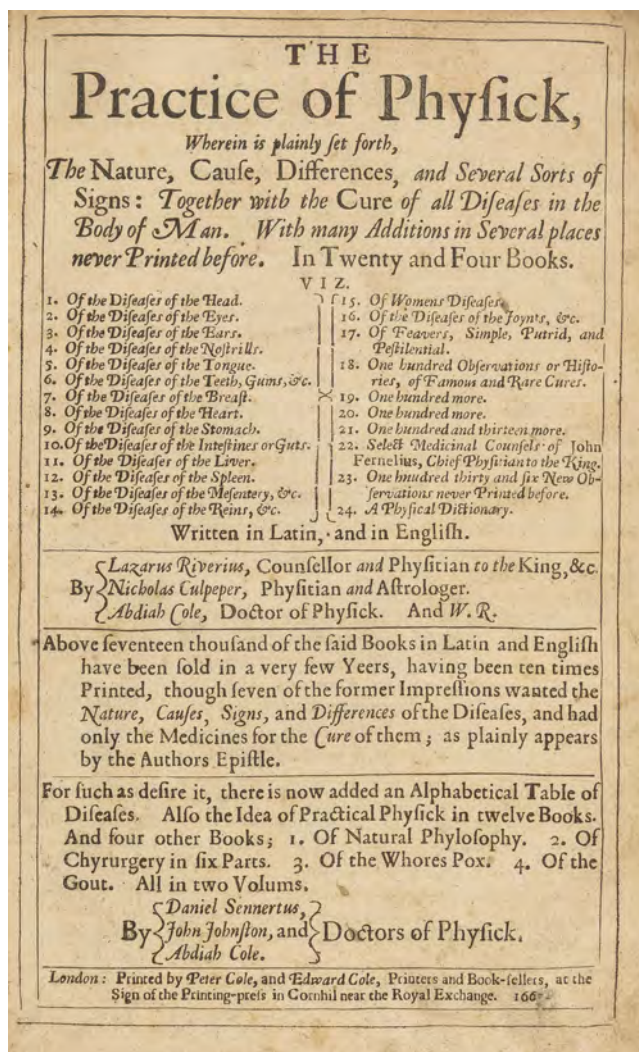 THE
Practice of Phyſick,
Wherein is plainly ſet forth,
The Nature, Cauſe, Differences, and Several Sorts of
Signs: Together with the Cure of all Diſeaſes in the
Body of Man. With many Additions in Several places
never Printed before. In Twenty and Four Books.
VIZ.
1. Of the Diſeaſes of the Head.
2. Of the Diſeaſes of the Eyes.
3. Of the Diſeaſes of the Ears.
4. Of the Diſeaſes of the Noſtrills.
5. Of the Diſeaſes of the Tongue.
6. Of the Diſeaſes of the Teeth, Gums, &c.
7. Of the Diſeaſes of the Breaſt.
8. Of the Diſeaſes of the Heart.
9. Of the Diſeaſes of the Stomach.
10. Of the Diſeaſes of the Inteſtines or Guts.
11. Of the Diſeaſes of the Liver.
12. Of the Diſeaſes of the Spleen.
13. Of the Diſeaſes of the Meſentery, &c.
14. Of the Diſeaſes of the Reins, &c.
15. Of Womens Diſeaſes.
16. Of the Diſeaſes of the Joynts, &c.
17. Of Feavers, Simple, Putrid, and
Peſtilential.
18. One hundred Obſervations or Hiſto-
ries, of Famous and Rare Cures.
19. One hundred more.
20. One hundred more.
21. One hundred and thirteen more.
22. Select Medicinal Counſels of John
Fernelius, Chief Phyſitian to the King.
23. One hnudred thirty and ſix New Ob-
ſervations never Printed before.
24. A Phyſical Dictionary.
Written in Latin, and in Engliſh.
Lazarus Riverius, Counſellor and Phyſitian to the King, &c.
By Nicholas Culpeper, Phyſitian and Aſtrologer.
Abdiah Cole, Doctor of Phyſick. And W. R.
Above ſeventeen thouſand of the ſaid Books in Latin and Engliſh
have been ſold in a very few Yeers, having been ten times
Printed, though ſeven of the former Impreſſions wanted the
Nature, Cauſes, Signs, and Differences of the Diſeaſes, and had
only the Medicines for the Cure of them; as plainly appears
by the Authors Epiſtle.
For ſuch as deſire it, there is now added an Alphabetical Table of
Diſeaſes. Alſo the Idea of Practical Phyſick in twelve Books.
And four other Books; 1. Of Natural Phyloſophy. 2. Of
Chyrurgery in ſix Parts. 3. Of the Whores Pox. 4. Of the
Gout. All in two Volums.
Daniel Sennertus,
By John Johnſton, and Doctors of Phyſick.
Abdiah Cole.
London: Printed by Peter Cole, and Edward Cole, Printers and Book-ſellers, at the
Sign of the Printing-preſs in Cornhil near the Royal Exchange.